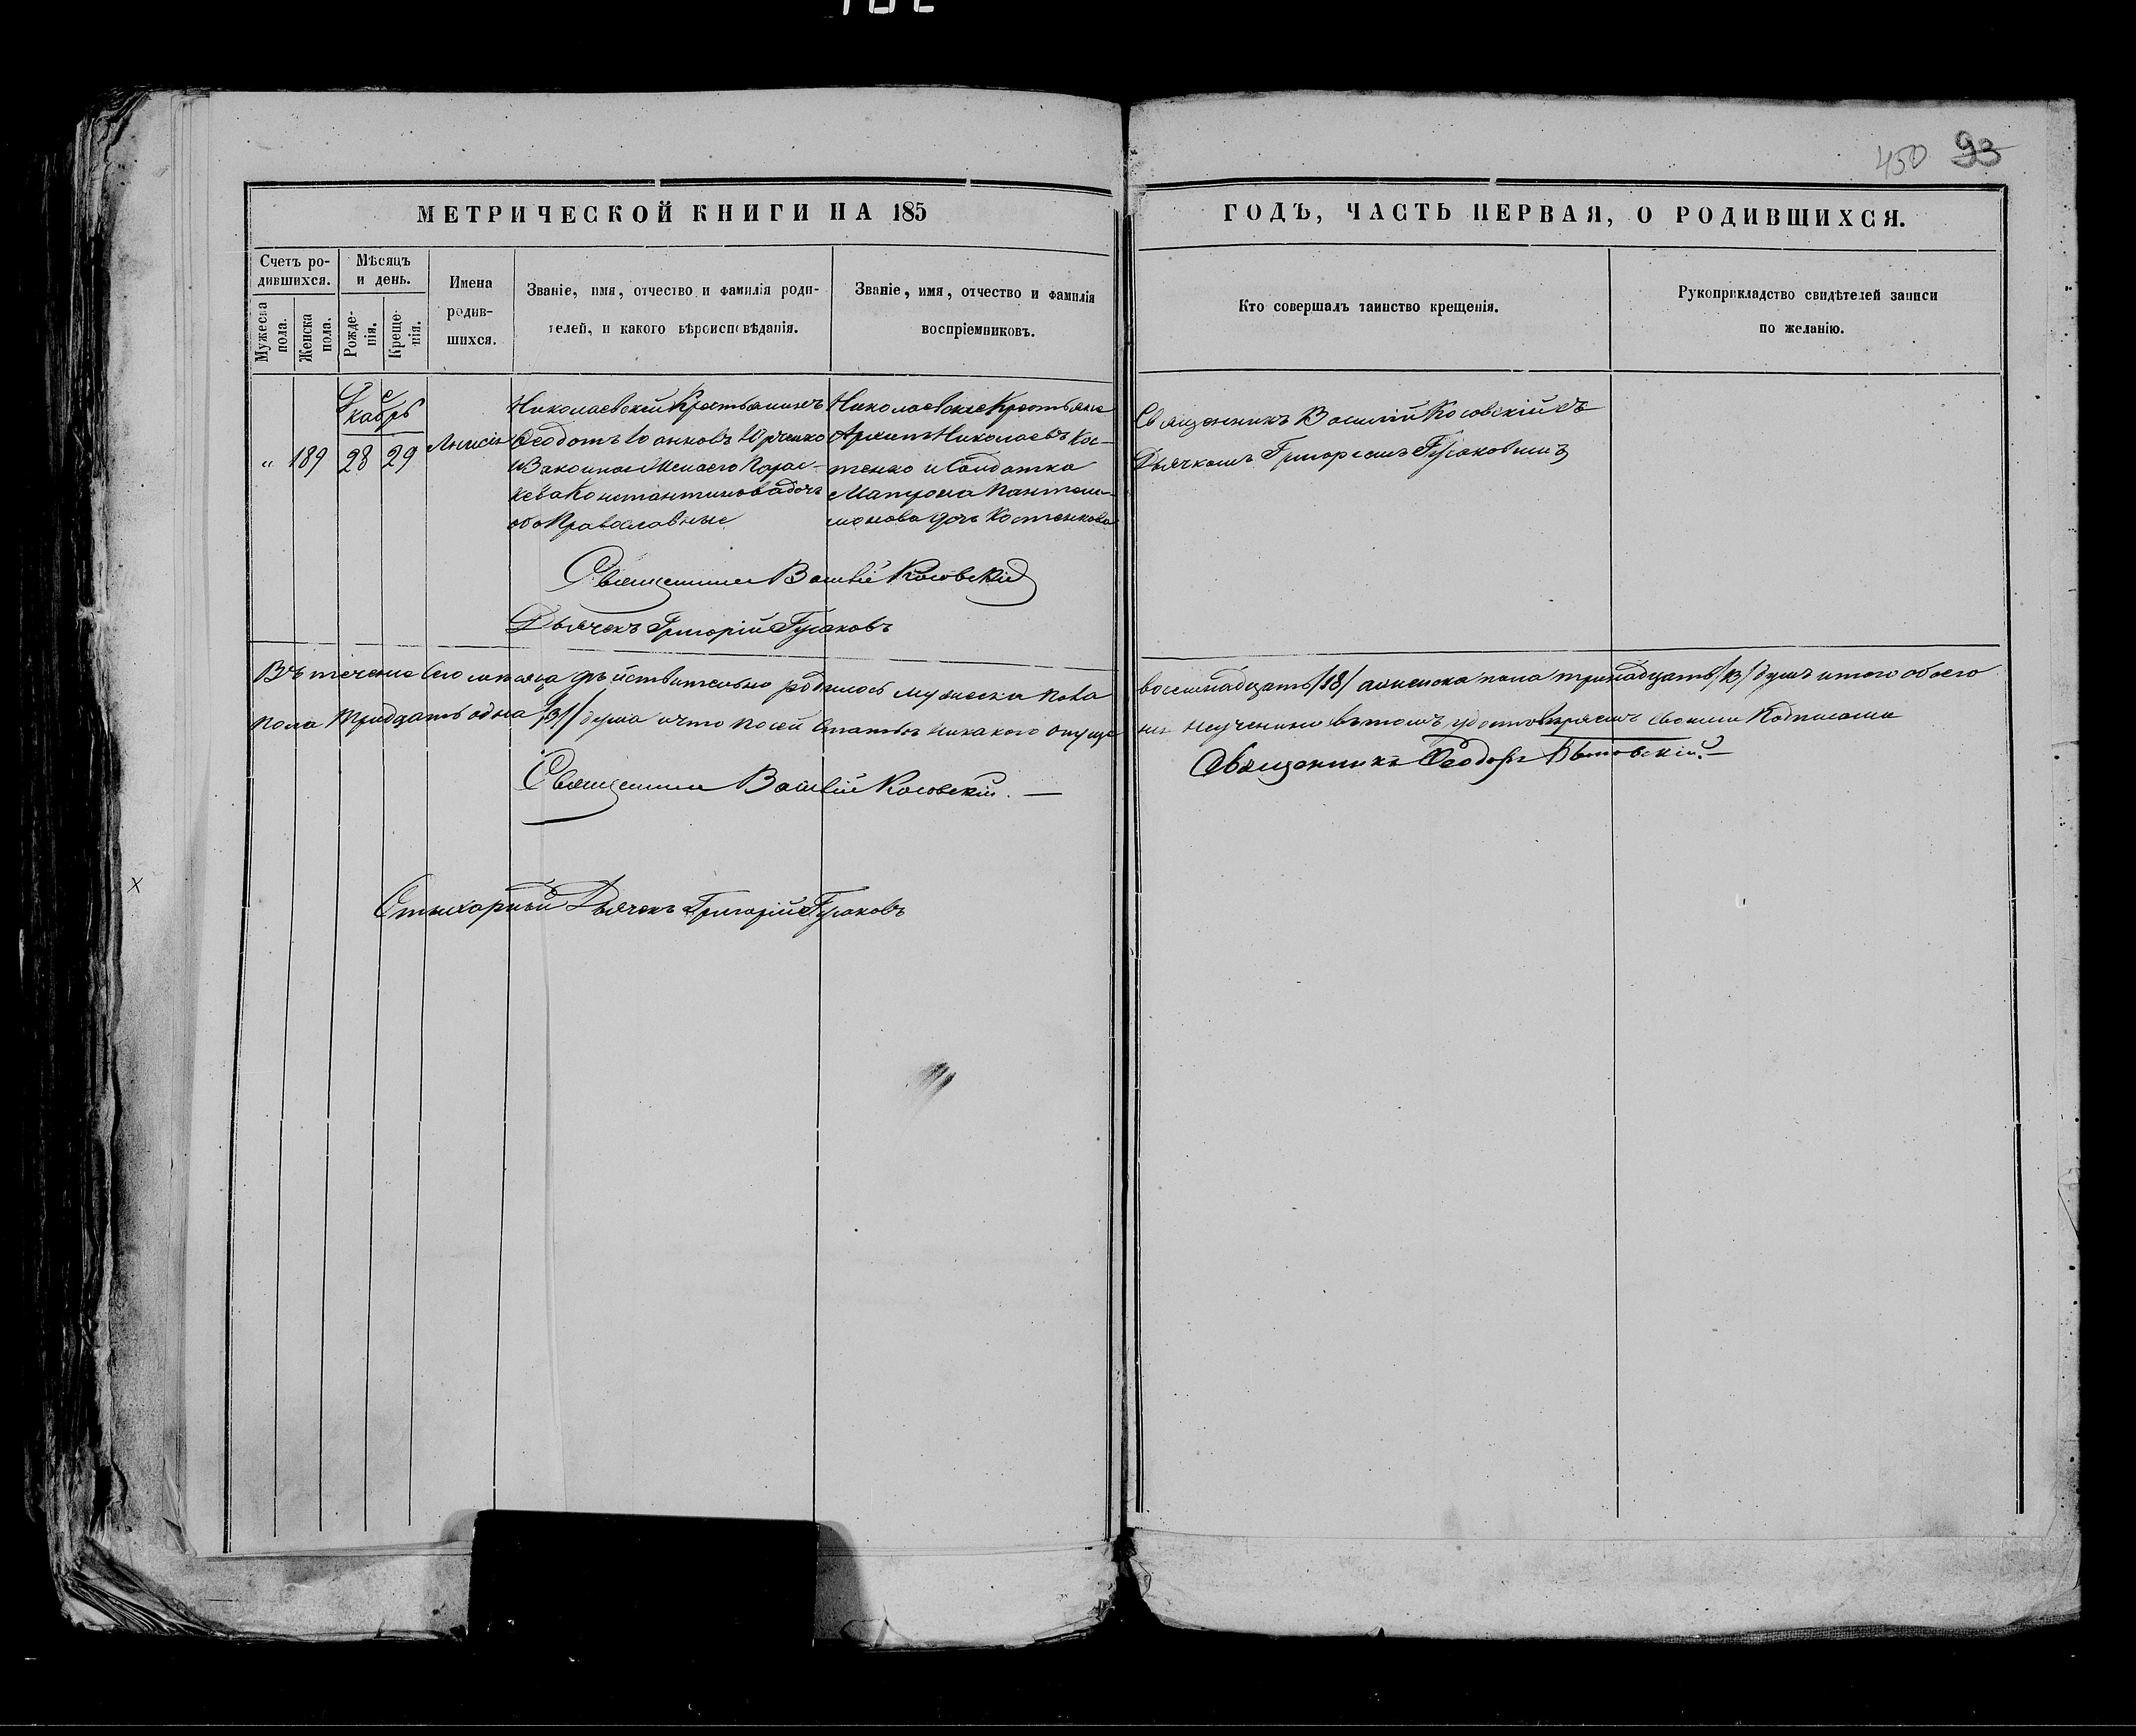 450 93
МЕТРИЧЕСКОЙ КНИГИ НА 185
ГОДЪ, ЧАСТЬ ПЕРВАЯ, О РОДИВШИХСЯ.
Счетъ ро-
дившихся.
Мужеска
пола.
Женска
пола.
Мѣсяцъ
и день.
Рожде-
нія.
Креще-
нія.
Имена
родив-
шихся.
Званіе, имя, отчество и фамилія роди-
телей, и какого вѣроисповѣданія.
Званіе, имя, отчество и фамилія
воспріемниковъ.
Кто совершалъ таинство крещенія.
Рукоприкладство свидѣтелей записи
по желанію.
Декабрь
" 189 28 29
Николаевскій Крестьянинъ
Ѳеодотъ Іоанновъ Юрченко
и Законная Жена его Парас-
кева Константинова дочь
оба Православные
Николаевскіе Крестьяне
Архипъ Николаевъ Кос-
тенко и Солдатка
Матрона Пантеле-
имонова дочь Костенкова
Священникъ Василій Косовскій съ
Дьячкомъ Григоріемъ Гусаковымъ
Священникъ Василій Косовскій
Дьячекъ Григорій Гусаковъ
Въ теченіе сего мѣсяца дѣйствительно родилось мужеска пола восемнадцать /18/ а женска пола тринадцать /13/ душъ итого обоего
пола тридцать одна /31/ душа и что по сей статьѣ никакого опуще въ томъ удостовѣряемъ своими подписами
Священникъ Василій Косовскій.
Священникъ Ѳеодоръ
Стихарный Дьячекъ Григорій Гусаковъ